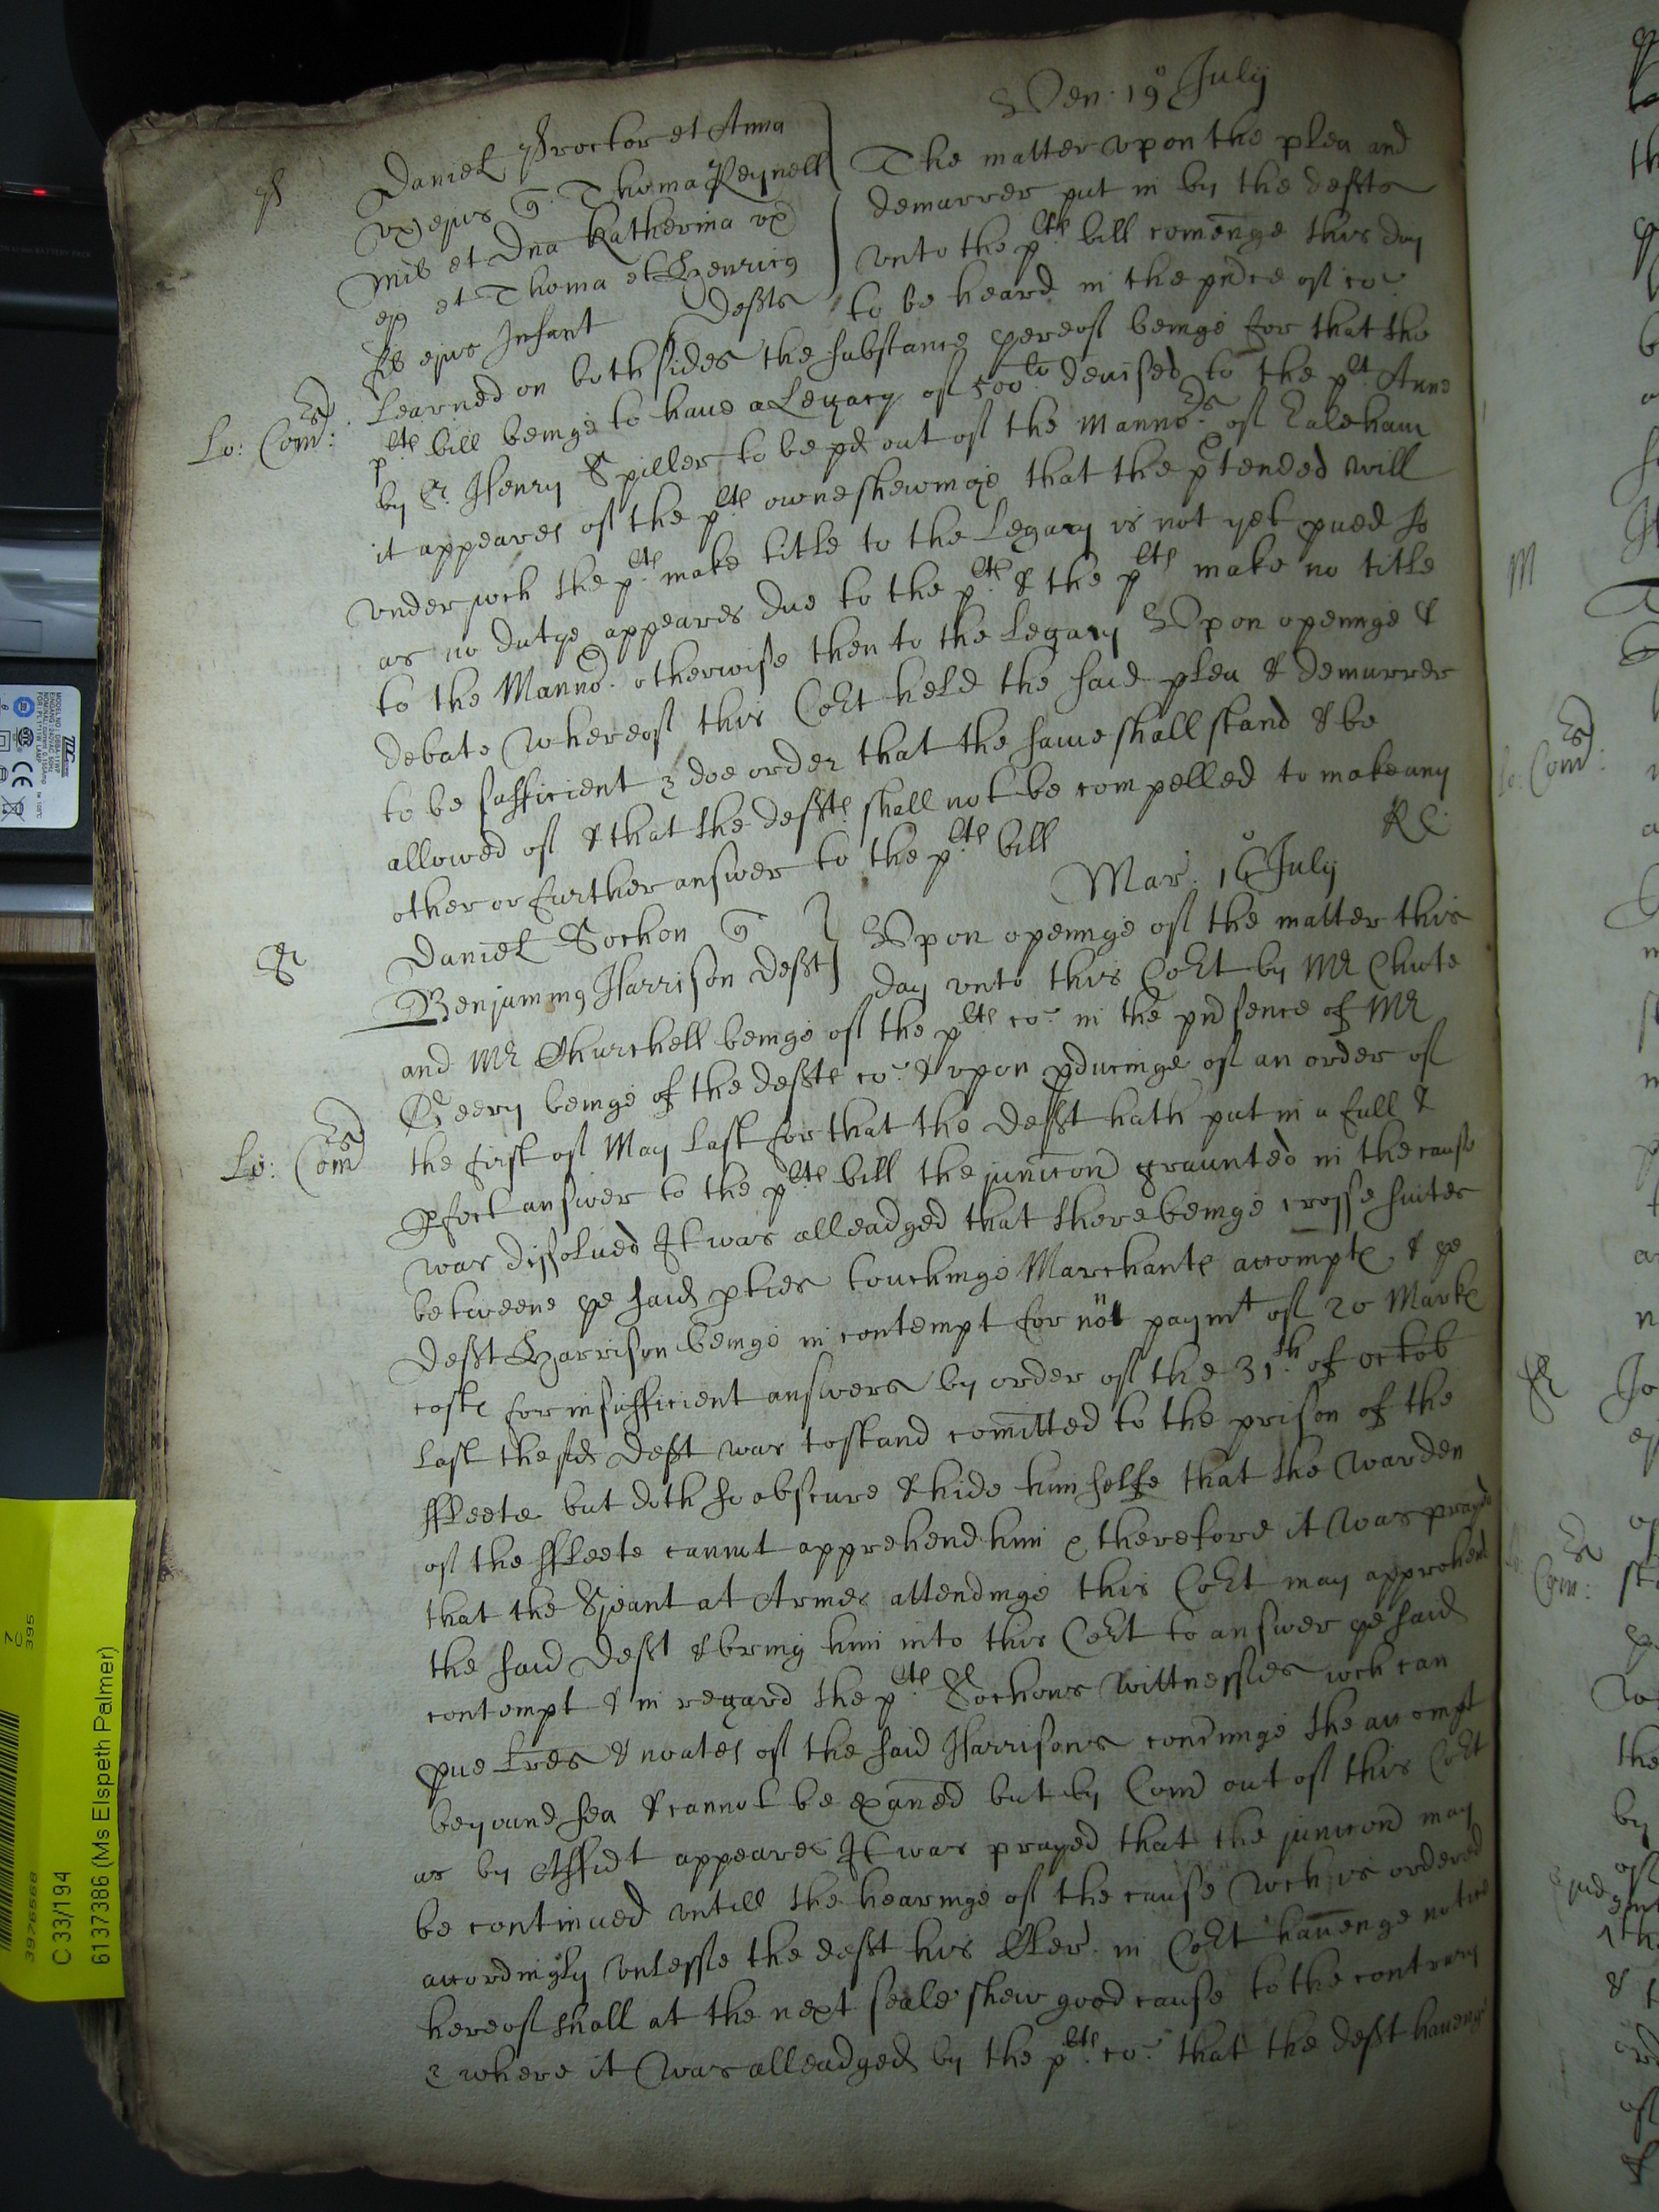 Ven. 19o July
P
Daniel Proctor et Anna
vx ejus q. Thoma Reynell
mil et Dna Katherina vx
ejus et Thoma et Henricus
fil ejus Infant Defts
The matter vpon the plea and
demurrer put in by the defts
vnto the plts bill comenge this day
to be heard in the pnce of co:
Lo: Com:rs
Learned on both sides the substance yereof beinge for that the
plts bill beinge to haue a Legacy of 500li deuised to the plt Anne
by Sr. Henry Spiller to be pd out of the Manno.rs of Laleham
it appeares of the plts owne shewinge that the ptended will
vnder wch the plts make title to the Legacy is not yet pued so
as no dutye appeares due to the plts & the plts make no title
to the Manno. otherwise then to the Legacy Vpon openinge &
debate whereof this Cort held the said plea & demurrer
to be sufficient & doe order that the same shall stand & be
allowed of & that the defts shall not be compelled to make any
other or further answer to the plts bill
RC
Mar. 16o July
S
Daniel Sochon q
Benjaming Harrison Deft
Vpon openinge of the matter this
day vnto this Cort by Mr Chute
and Mr Churchell beinge of the plts co: in the pnsence of Mr
Geery beinge of the defts co: & vpon pducinge of an order of
Lo: Comrs
the first of May last for that the Deft hath put in a full &
pfect answer to the plts bill the juncon graunted in the cause
was dissolued It was alleadged that there beinge crosse suites
betweene ye said pties touchinge Marchants accompts & ye
Deft Harrison beinge in contempt for not paymt of 20 Marks
costs for insufficient answers by order of the 31th of octob
last the sd Deft was to stand comitted to the prison of the
ffleete but doth so obscure & hide himselfe that the warden
of the ffleete cannot apprehend him & therefore it was prayd
that the Sjeant at Armes attendinge this Cort may apprehend
the said Deft & bring him into this Cort to answer ye said
contempt & in regard the plts Sochons wittnesses wch can
pue Lres & noates of the said Harrisons concninge the accompt
beyound sea & cannot be exaned but by Com out of this Cort
as by Affidt appeares It was prayed that the juncon may
be continued vntill the hearinge of the cause wch is ordered
accordingly vnlesse the deft his Cler. in Cort hauenge notice
hereof shall at the next seale shew good cause to the contrary
& where it was alleadged by the plts co: that the deft haueng
7C
395
3976568
C 33/194
6137386 (Ms Elspeth Palmer)